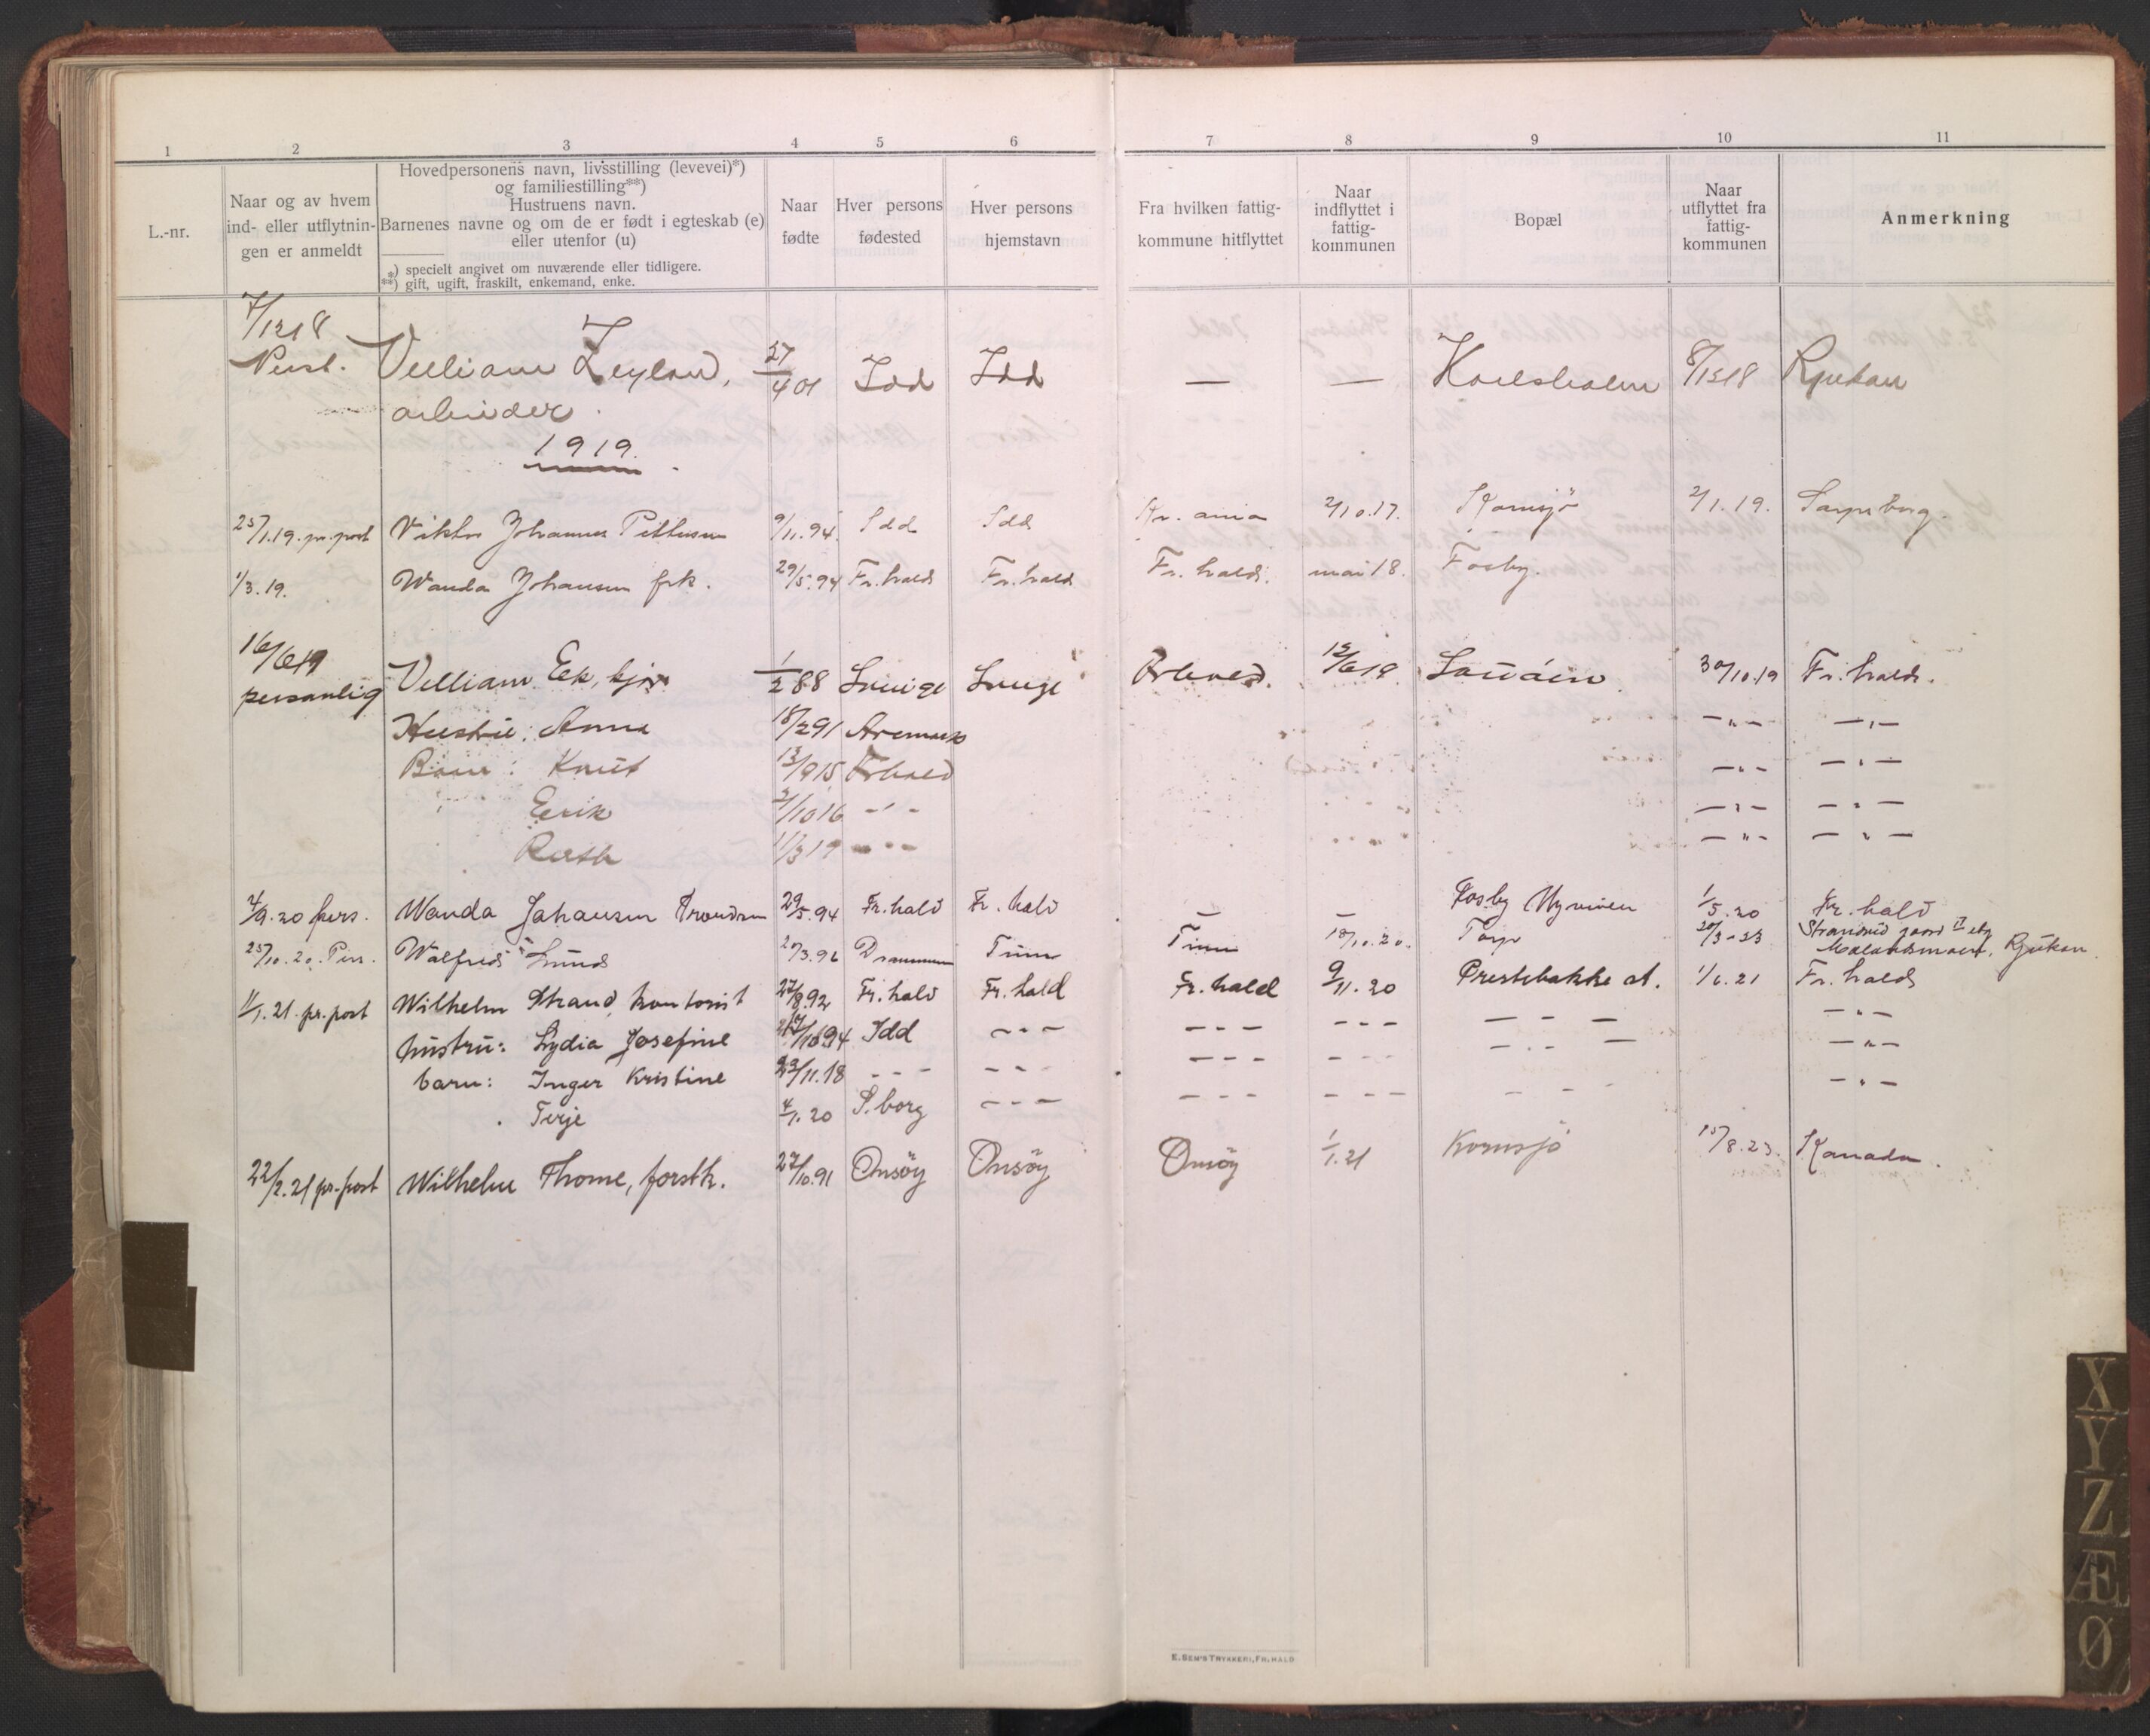 1 2 3 4 5 6 7 8 9 10 11
L.-nr.
Naar og av hvem
ind- eller utflytnin-
gen er anmeldt
Hovedpersonens navn, livsstilling (levevei)*)
og familiestilling**)
Hustruens navn.
Barnenes navne og om de er født i egteskab (e)
eller utenfor (u)
*) specielt angivet om nuværende eller tidligere.
**) gift, ugift, fraskilt, enkemand, enke.
Naar
fødte
Hver persons
fødested
Hver persons
hjemstavn
Fra hvilken fattig-
kommune hitflyttet
Naar
indflyttet i
fattig-
kommunen
Bopæl
Naar
utflyttet fra
fattig-
kommunen
Anmerkning
7/12 18
Villiam 27/4 01 Idd Idd — — 8/12 18 Rjukan
arbeider.
1919.
25/1.19. pr. post Viktor Johannes 9/11.94. Idd Idd Kr. ania 2/10.17. Kornsjö 2/1.19. Sarpsborg.
1/3.19. Wanda Johansen frk. 29/5.94 Fr.hald Fr.hald Fr. hald. mai 18. Fosby.
16/6 19
personlig Villiam Ek, 1/2 88 Sverige Sverige Frhald. 12/6 19. 30/10.19 Fr. hald.
Hustru: Anna 18/2 91 Aremark —„— —„—
Barn: Knut 13/9 15 Frhald —„— —„—
Erik 2/10 16 -„- —„— —„—
Ruth 1/3 19 -„- —„— —„—
4/9.20 pers. Wanda Johansen Trondsen 29/5.94 Fr.hald Fr. hald — — Fosby 1/5.20 Fr. hald
25/10.20. Pers. Walfred Lund 20/3.96 Drammen Tinn Tinn 18/10.20. Torp 20/3-23 Rjukan.
11/1.21. pr. post Wilhelm Strand, kontorist 27/8.92 Fr.hald Fr.hald Fr.hald 9/11.20 Prestebakke st. 1/6.21 Fr. hald
hustru: Lydia Josefine 27/10.94 Idd --- --- --- --- —„—
barn: Inger Kristine 23/11.18 --- --- --- --- --- —„—
Terje 4/1.20 S.borg --- --- --- --- —„—
22/2.21 pr. post Wilhelm Thome, forstk. 27/10.91 Onsöy Onsöy Onsöy 1/1.21 Kornsjö 15/8.23. Kanada.
E. SEM'S TRYKKERI, FR.HALD
X
Y
Z
Æ
Ø